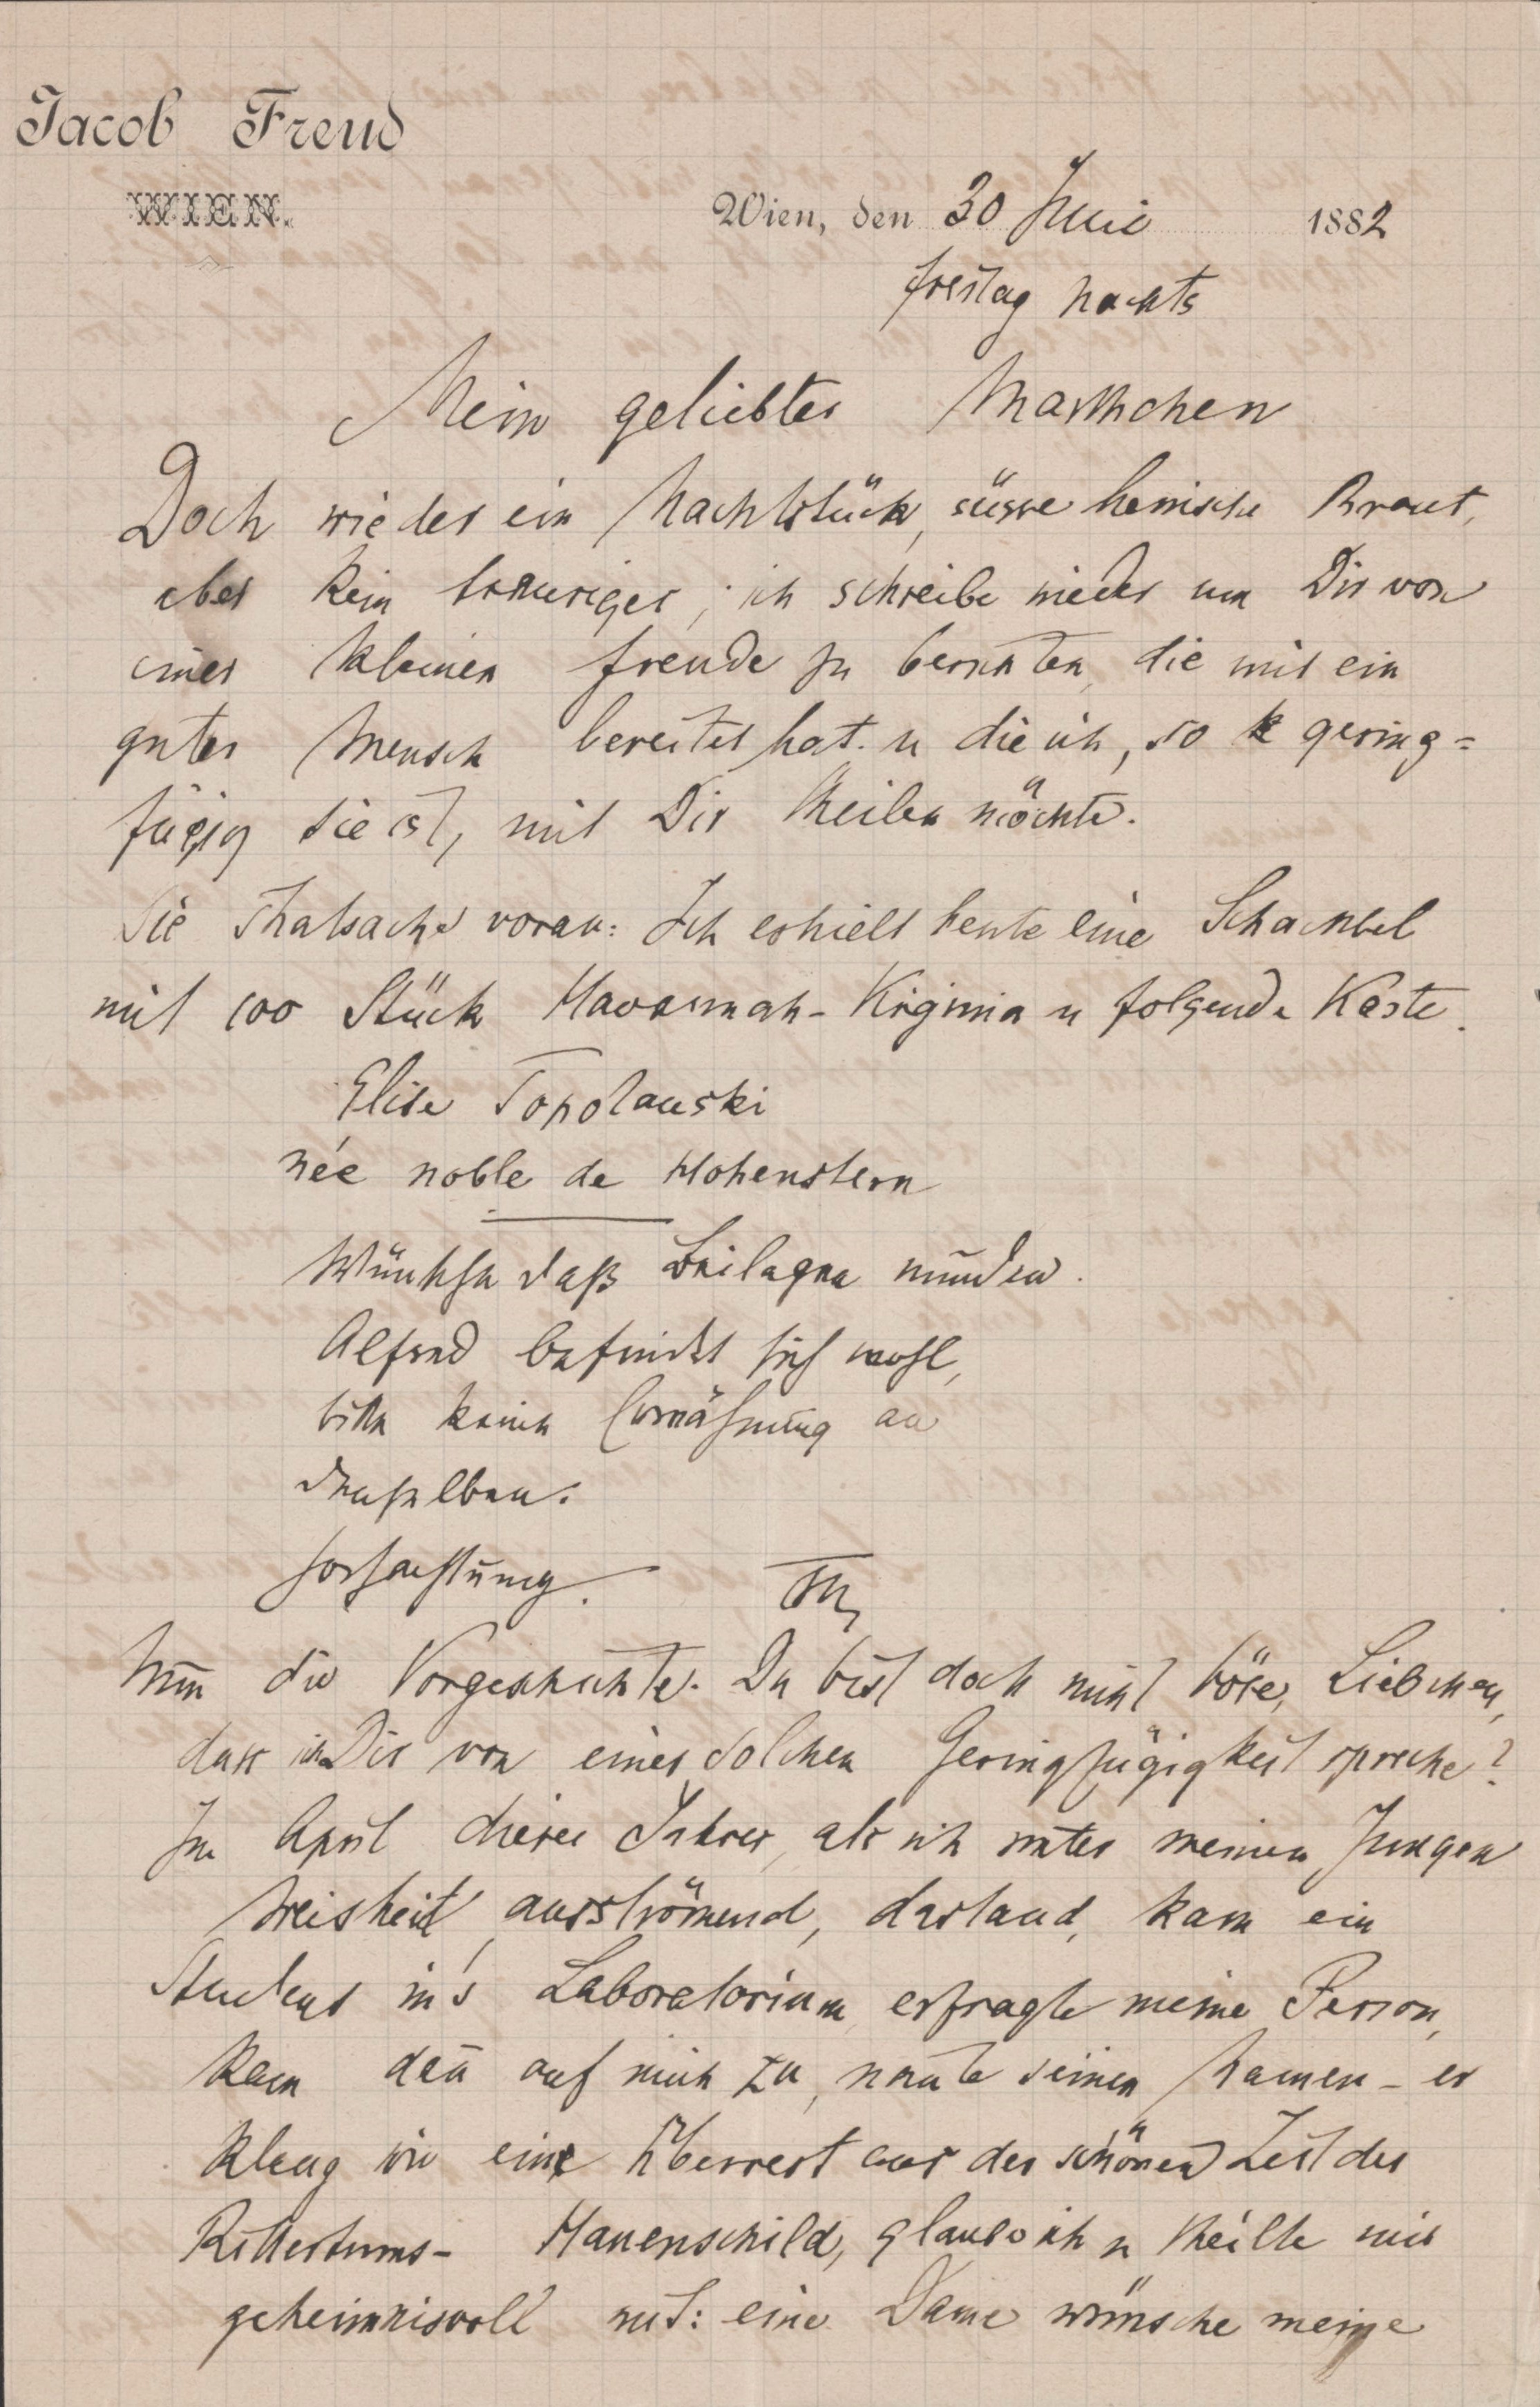 Jacob Freud
WIEN.
Wien, den 30 Juni 1882
Freitag nachts
Mein geliebtes Marthchen
Doch wieder ein Nachtstück, süsse Braut,
aber kein trauriges; ich schreibe nieder um Dir von
einer kleinen Freude zu berichten, die mir ein
guter Mensch bereitet hat u die ich, so k gering=
fügig sie ist, mit Dir theilen möchte.
Die Thatsache voran: Ich erhielt heute eine Schachtel
mit 100 Stück Havannah-Virginia u folgende Karte.
Elise Topolanski
née noble de Hohenstern
Wünsche daß Beilagen munden.
Alfred befindet sich wohl,
bitte keine Erwähnung an
denselben.
Hochachtung.
Nun die Vorgeschichte. Du bist doch nicht böse, Liebchen,
dass ich Dir von einer solchen Geringfügigkeit spreche?
Im April dieses Jahres, als ich unter meinen Jungen
Weisheit ausströmend, dastand, kam ein
Student in's Laboratorium, erfragte meine Person,
kam dañ auf mich zu, nannte seinen Namen - er
klang wie eine Überrest aus der schönen Zeit des
Rittertums - Hanenschild, glaube ich u theilte mir
geheimnisvoll mit: eine Dame wünsche meine